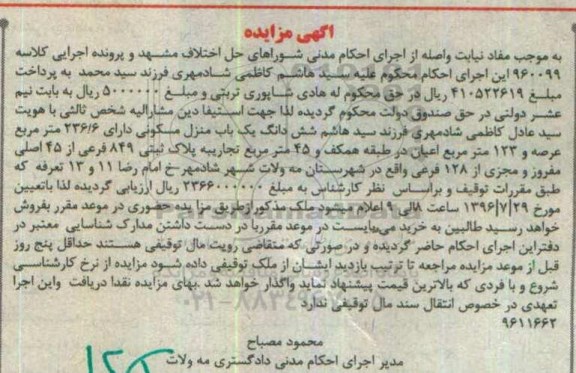 آگهی مزایده
به موجب مفاد نیابت واصله از اجرای احکام مدنی شوراهای حل اختلاف مشهد و پرونده اجرایی کلاسه
۹۶۰۰۹۹ این اجرای احکام محکوم علیه سید هاشم کاظمی شادمهری فرزند سید محمد به پرداخت
مبلغ ۴۱۰۵۲۲۶۱۹ ریال در حق محکوم له هادی شاپوری تربتی و مبلغ ۵۰۰۰۰۰۰ ریال به بابت نیم
عشر دولتی در حق صندوق دولت محکوم گردیده لذا جهت استیفا دین مشارالیه شخص ثالثی با هویت
سید عادل کاظمی شادمهری فرزند سید هاشم شش دانگ یک باب منزل مسکونی دارای ۲۳۶/۶ متر مربع
عرصه و ۱۲۳ متر مربع اعیان در طبقه همکف و ۴۵ متر مربع تجاربیه پلاک ثبتی ۸۴۹ فرعی از ۴۵ اصلی
مفروز و مجزی از ۱۲۸ فرعی واقع در شهرستان مه ولات شهر شادمهر-خ امام رضا ۱۱ و ۱۳ تعرفه که
طبق مقررات توقیف و براساس نظر کارشناس به مبلغ ۲۳۶۶۰۰۰۰۰۰ ریال ارزیابی گردیده لذا باتعیین
مورخ ۱۳۹۶/۷/۲۹ ساعت ۸الی ۹ اعلام میشود ملک مذکور ازطریق مزایده حضوری در موعد مقرر بفروش
خواهد رسید طالبین به خرید می‌بایست در موعد مقرربا در دست داشتن مدارک شناسایی معتبر در
دفتراین اجرای احکام حاضر گردیده و در صورتی که متقاضی رویت مال توقیفی هستند حداقل پنج روز
قبل از موعد مزایده مراجعه تا ترتیب بازدید ایشان از ملک توقیفی داده شود مزایده از نرخ کارشناسی
شروع و با فردی که بالاترین قیمت پیشنهاد نماید واگذار خواهد شد .بهای مزایده نقدا دریافت واین اجرا
تعهدی در خصوص انتقال سند مال توقیفی ندارد
۹۶۱۱۶۶۲
محمود مصباح
مدیر اجرای احکام مدنی دادگستری مه ولات